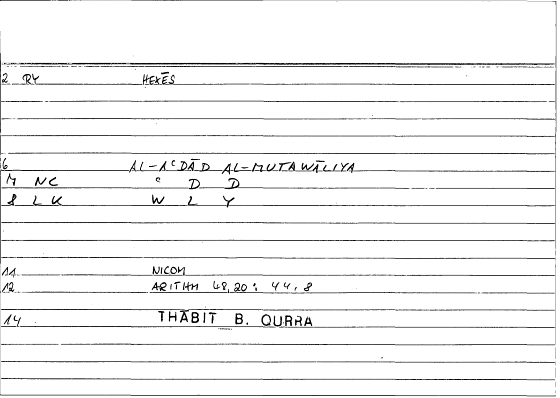 2 RY HEXĒS
6 AL-AʿDĀD AL-MUTAWĀLIYA
M NC ʿ D D
8 L K W L Y
11 NICOM
12 ARITHM 48,20: 44,8
14 THĀBIT B. QURRA